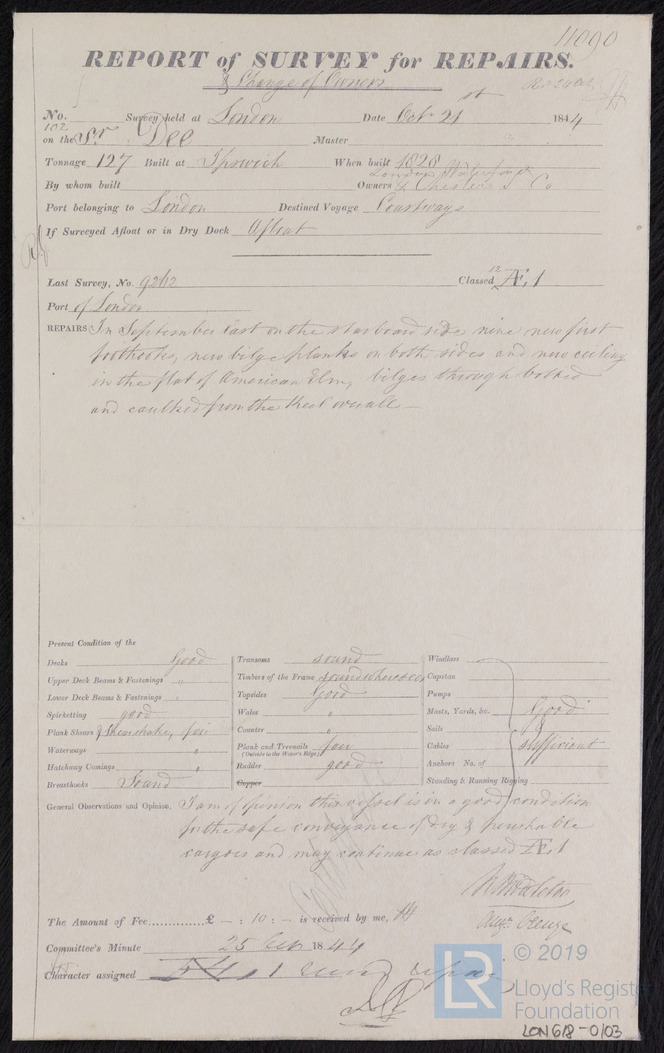 11090
REPORT of SURVEY for REPAIRS.
& Change of Owners
No. 102 Survey held at London Date Octr 21st 1844
on the Sr. Dee Master
Tonnage 127 Built at Ipswich When built 1828
By whom built Owners London Waterford & Chester S Co
Port belonging to London Destined Voyage Coastways
If Surveyed Afloat or in Dry Dock Afloat
Last Survey, No. 9262 Classed 12 Æ, 1
Port of London
REPAIRS In September last on the starboard side nine new first
foothooks, new bilge planks on both sides and new ceiling
in the flat of American Elm, bilges through bolted
and caulked from the Keel overall —
Present Condition of the
Decks Good
Upper Deck Beams & Fastenings "
Lower Deck Beams & Fastenings "
Spirketting good
Plank Shears & Sheerstrakes, fair
Waterways "
Hatchway Comings "
Breasthooks Sound
Transoms sound
Timbers of the Frame sound where seen
Topsides Good
Wales "
Counter "
Plank and Treenails fair
(Outside to the Water's Edge)
Rudder good
Copper
Windlass
Capstan
Pumps
Masts, Yards, &c. Good
Sails
Cables sufficient
Anchors No. of
Standing & Running Rigging
General Observations and Opinion. I am of opinion this vessel is in a good condition
for the safe conveyance of dry & perishable
cargoes and may continue as classed Æ, 1
The Amount of Fee.............£ — : 10 : — is received by me,
Committee's Minute 25 1844
Character assigned
LR © 2019
Lloyd's Register
Foundation
LON618-0103